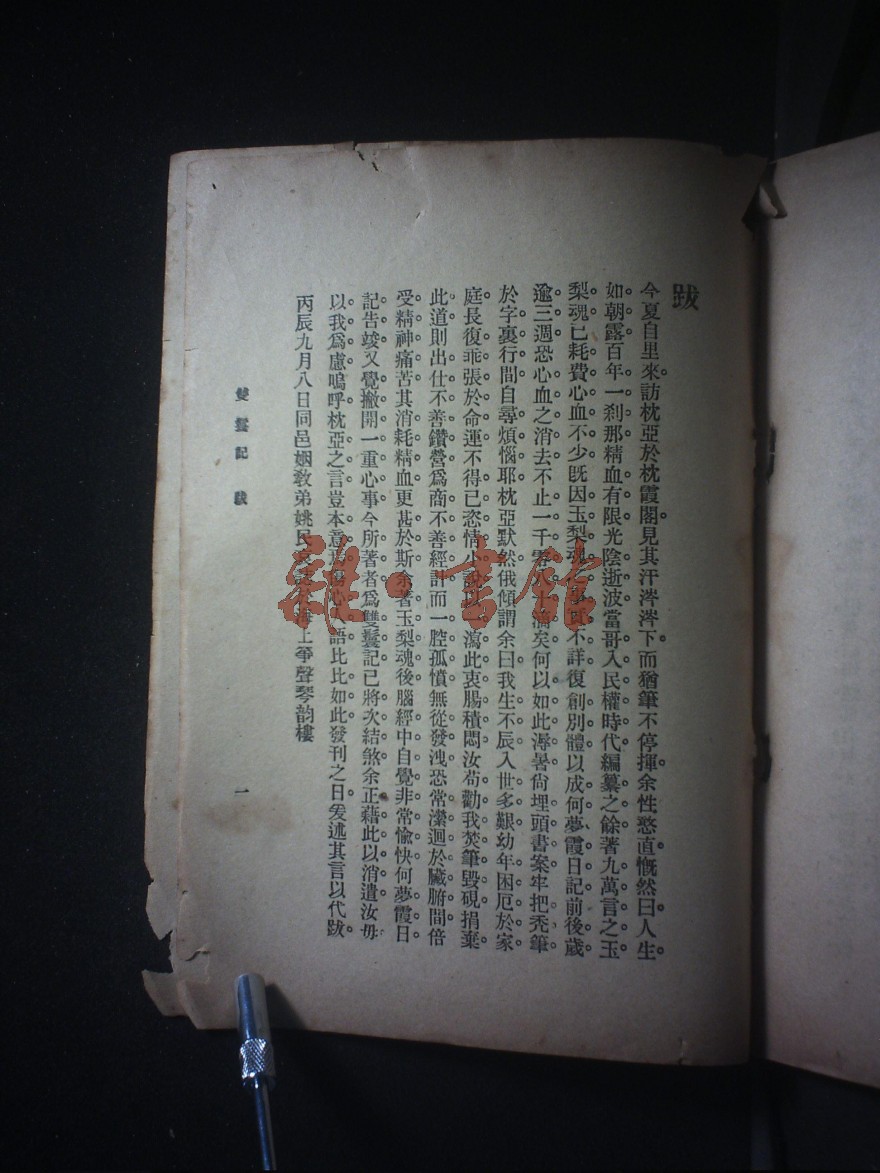 跋
今夏自里來訪枕亞於枕霞閣見其汗涔涔下而猶筆不停揮余性憨直慨然曰人生
如朝露百年一刹那精血有限光陰逝波當哥入民權時代編纂之餘著九萬言之玉
梨魂已耗費心血不少旣因玉梨魂事實不詳復創別體以成何夢霞日記前後歲
逾三週恐心血之消去不止一千零八十滴矣何以如此溽暑尙埋頭書案牢把禿筆
於字裏行間自尋煩惱耶枕亞默然俄傾謂余曰我生不辰入世多艱幼年困厄於家
庭長復乖張於命運不得已恣情小說以瀉此衷腸積悶汝苟勸我焚筆毀硯捐棄
此道則出仕不善鑽營爲商不善經計而一腔孤憤無從發洩恐常瀠迴於臟腑間倍
受精神痛苦其消耗精血更甚於斯余著玉梨魂後腦經中自覺非常愉快何夢霞日
記告竣又覺撇開一重心事今所著者爲雙鬟記已將次結煞余正藉此以消遣汝毋
以我爲慮嗚呼枕亞之言豈本意焉傷心人語比比如此發刊之日爰述其言以代跋
丙辰九月八日同邑姻敎弟姚民哀 海上箏聲琴韵樓
雙鬟記 跋
一
雜·書館